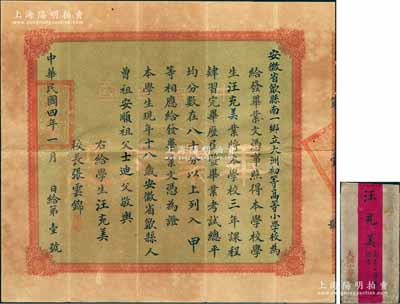 上海阳明拍卖
安徽省歙縣南一鄉立大洲初等高等小學校為
給發畢業文憑事照得本學校學
生汪克美業將本學校三年課程
肄習完畢歷經畢業考試總平
均分數在八十分以上列入甲
等相應給發畢業文憑為證
本學生現年十八歲安徽省歙縣人
曾祖安順祖父士迪父敬與
右給學生汪克美
校長張雲錦
中華民國四年一月 日給第壹號
汪克美